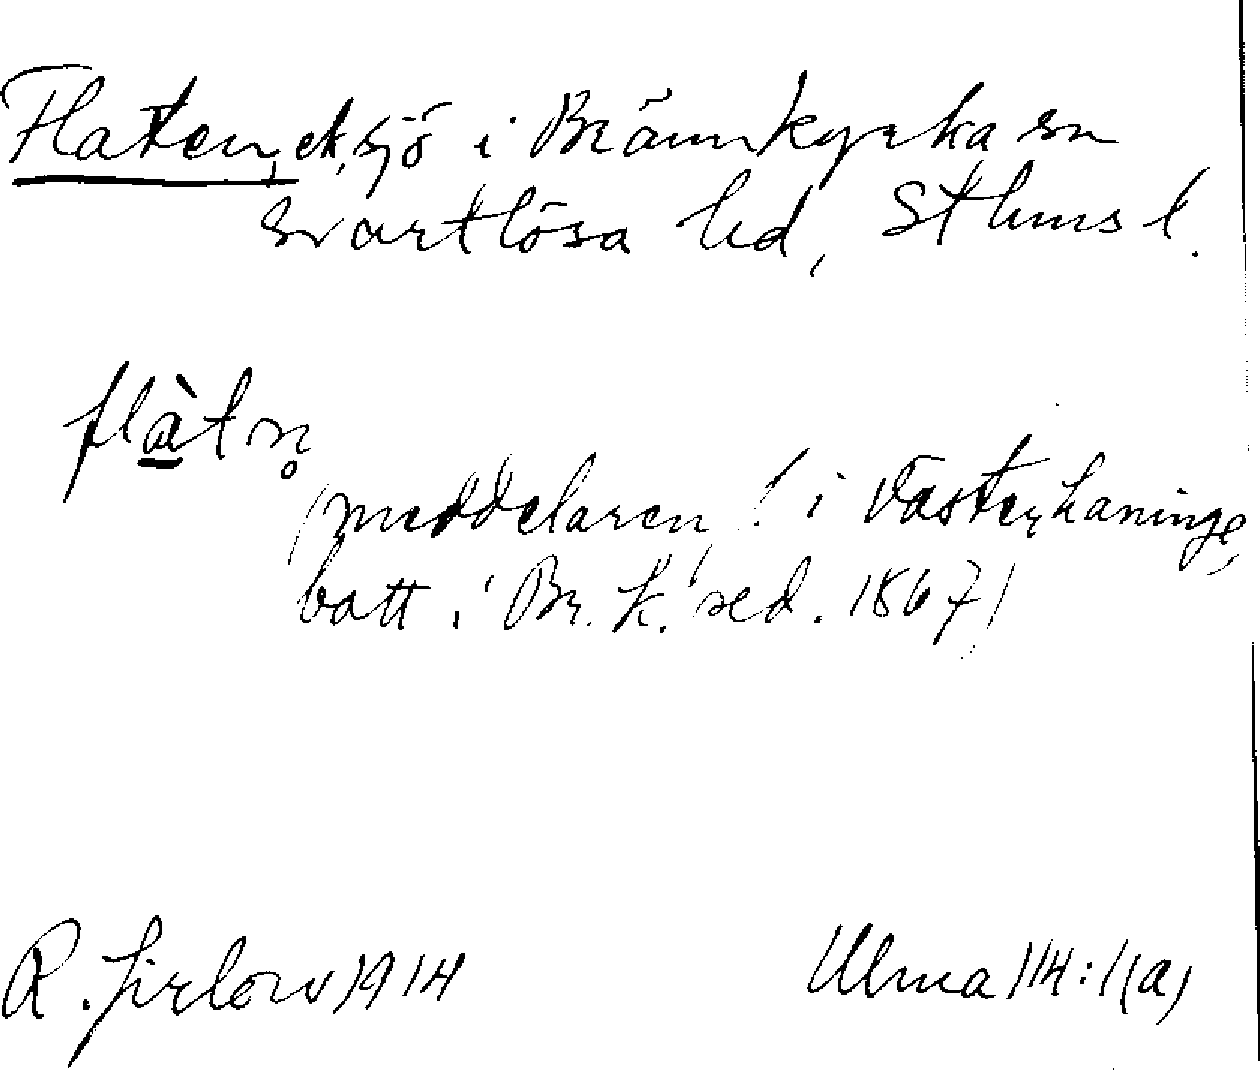 Flaten, ek, sjö i Brännkyrka sn
Svartlösa hd, Sthms l.
flàtn̥
(meddelaren f. i Västerhaninge,
bott i Br. k. sed. 1867)
R. Jirlow 1914
Ulma 114:1(a)